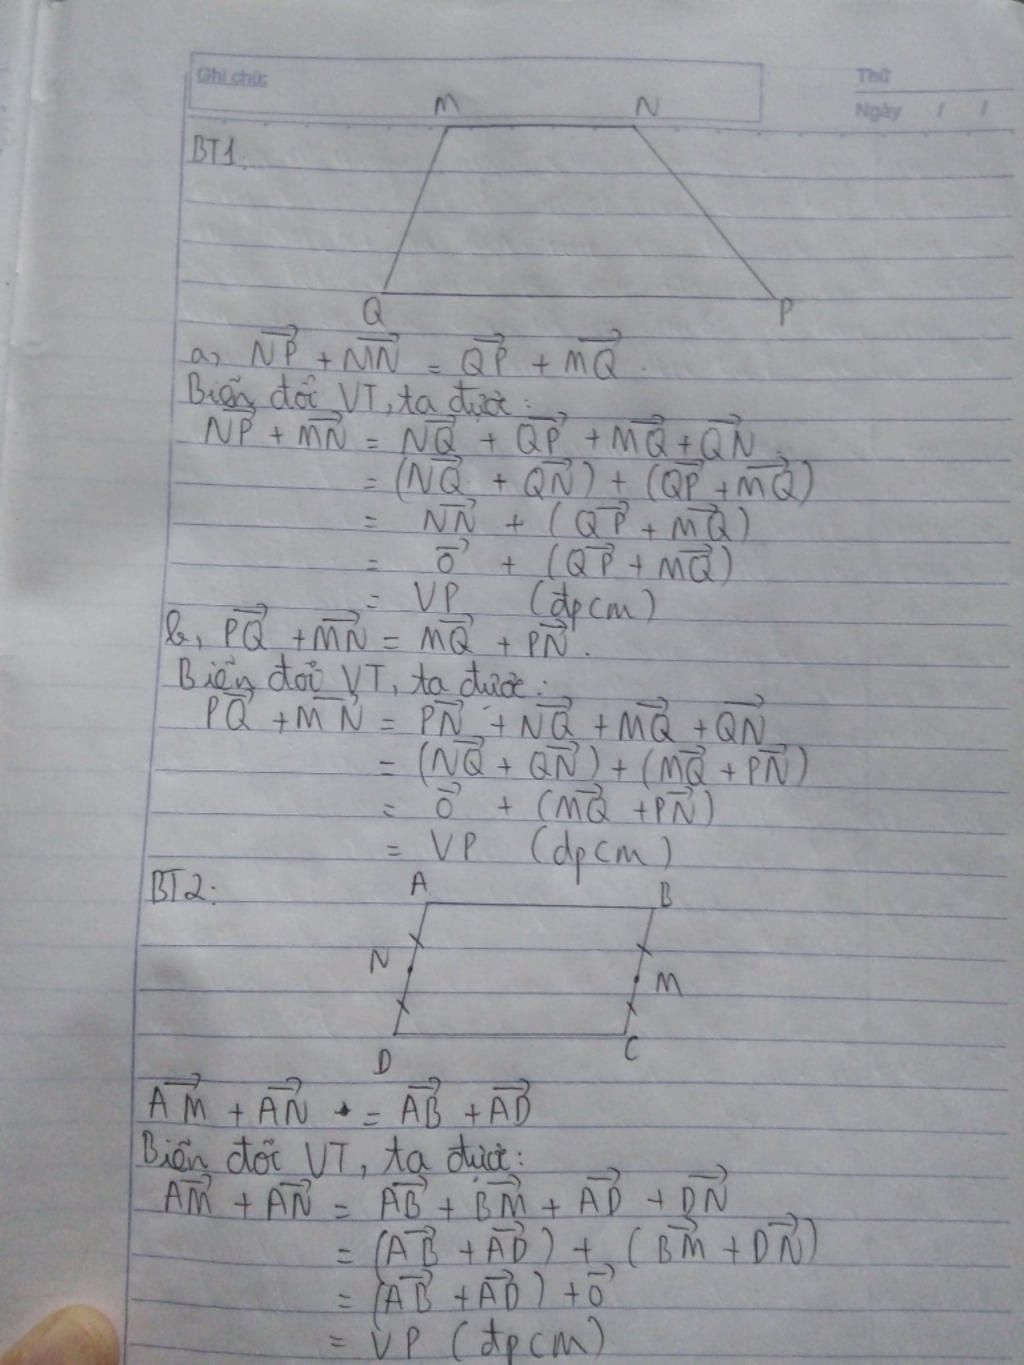 Ghi chú:
Thứ
Ngày / /
M N
BT1.
Q P
a, $\overrightarrow{NP} + \overrightarrow{MN} = \overrightarrow{QP} + \overrightarrow{MQ}$.
Biến đổi VT, ta được:
$\overrightarrow{NP} + \overrightarrow{MN} = \overrightarrow{NQ} + \overrightarrow{QP} + \overrightarrow{MQ} + \overrightarrow{QN}$.
$= (\overrightarrow{NQ} + \overrightarrow{QN}) + (\overrightarrow{QP} + \overrightarrow{MQ})$
$= \overrightarrow{NN} + (\overrightarrow{QP} + \overrightarrow{MQ})$
$= \overrightarrow{0} + (\overrightarrow{QP} + \overrightarrow{MQ})$
= VP (đpcm)
b, $\overrightarrow{PQ} + \overrightarrow{MN} = \overrightarrow{MQ} + \overrightarrow{PN}$.
Biến đổi VT, ta được:
$\overrightarrow{PQ} + \overrightarrow{MN} = \overrightarrow{PN} + \overrightarrow{NQ} + \overrightarrow{MQ} + \overrightarrow{QN}$
$= (\overrightarrow{NQ} + \overrightarrow{QN}) + (\overrightarrow{MQ} + \overrightarrow{PN})$
$= \overrightarrow{0} + (\overrightarrow{MQ} + \overrightarrow{PN})$
= VP (đpcm)
BT2:
A B
N M
D C
$\overrightarrow{AM} + \overrightarrow{AN} = \overrightarrow{AB} + \overrightarrow{AD}$
Biến đổi VT, ta được:
$\overrightarrow{AM} + \overrightarrow{AN} = \overrightarrow{AB} + \overrightarrow{BM} + \overrightarrow{AD} + \overrightarrow{DN}$
$= (\overrightarrow{AB} + \overrightarrow{AD}) + (\overrightarrow{BM} + \overrightarrow{DN})$
$= (\overrightarrow{AB} + \overrightarrow{AD}) + \overrightarrow{0}$
= VP (đpcm)